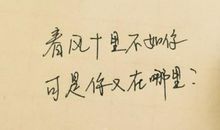 春风十里不如你
可是你又在哪里?